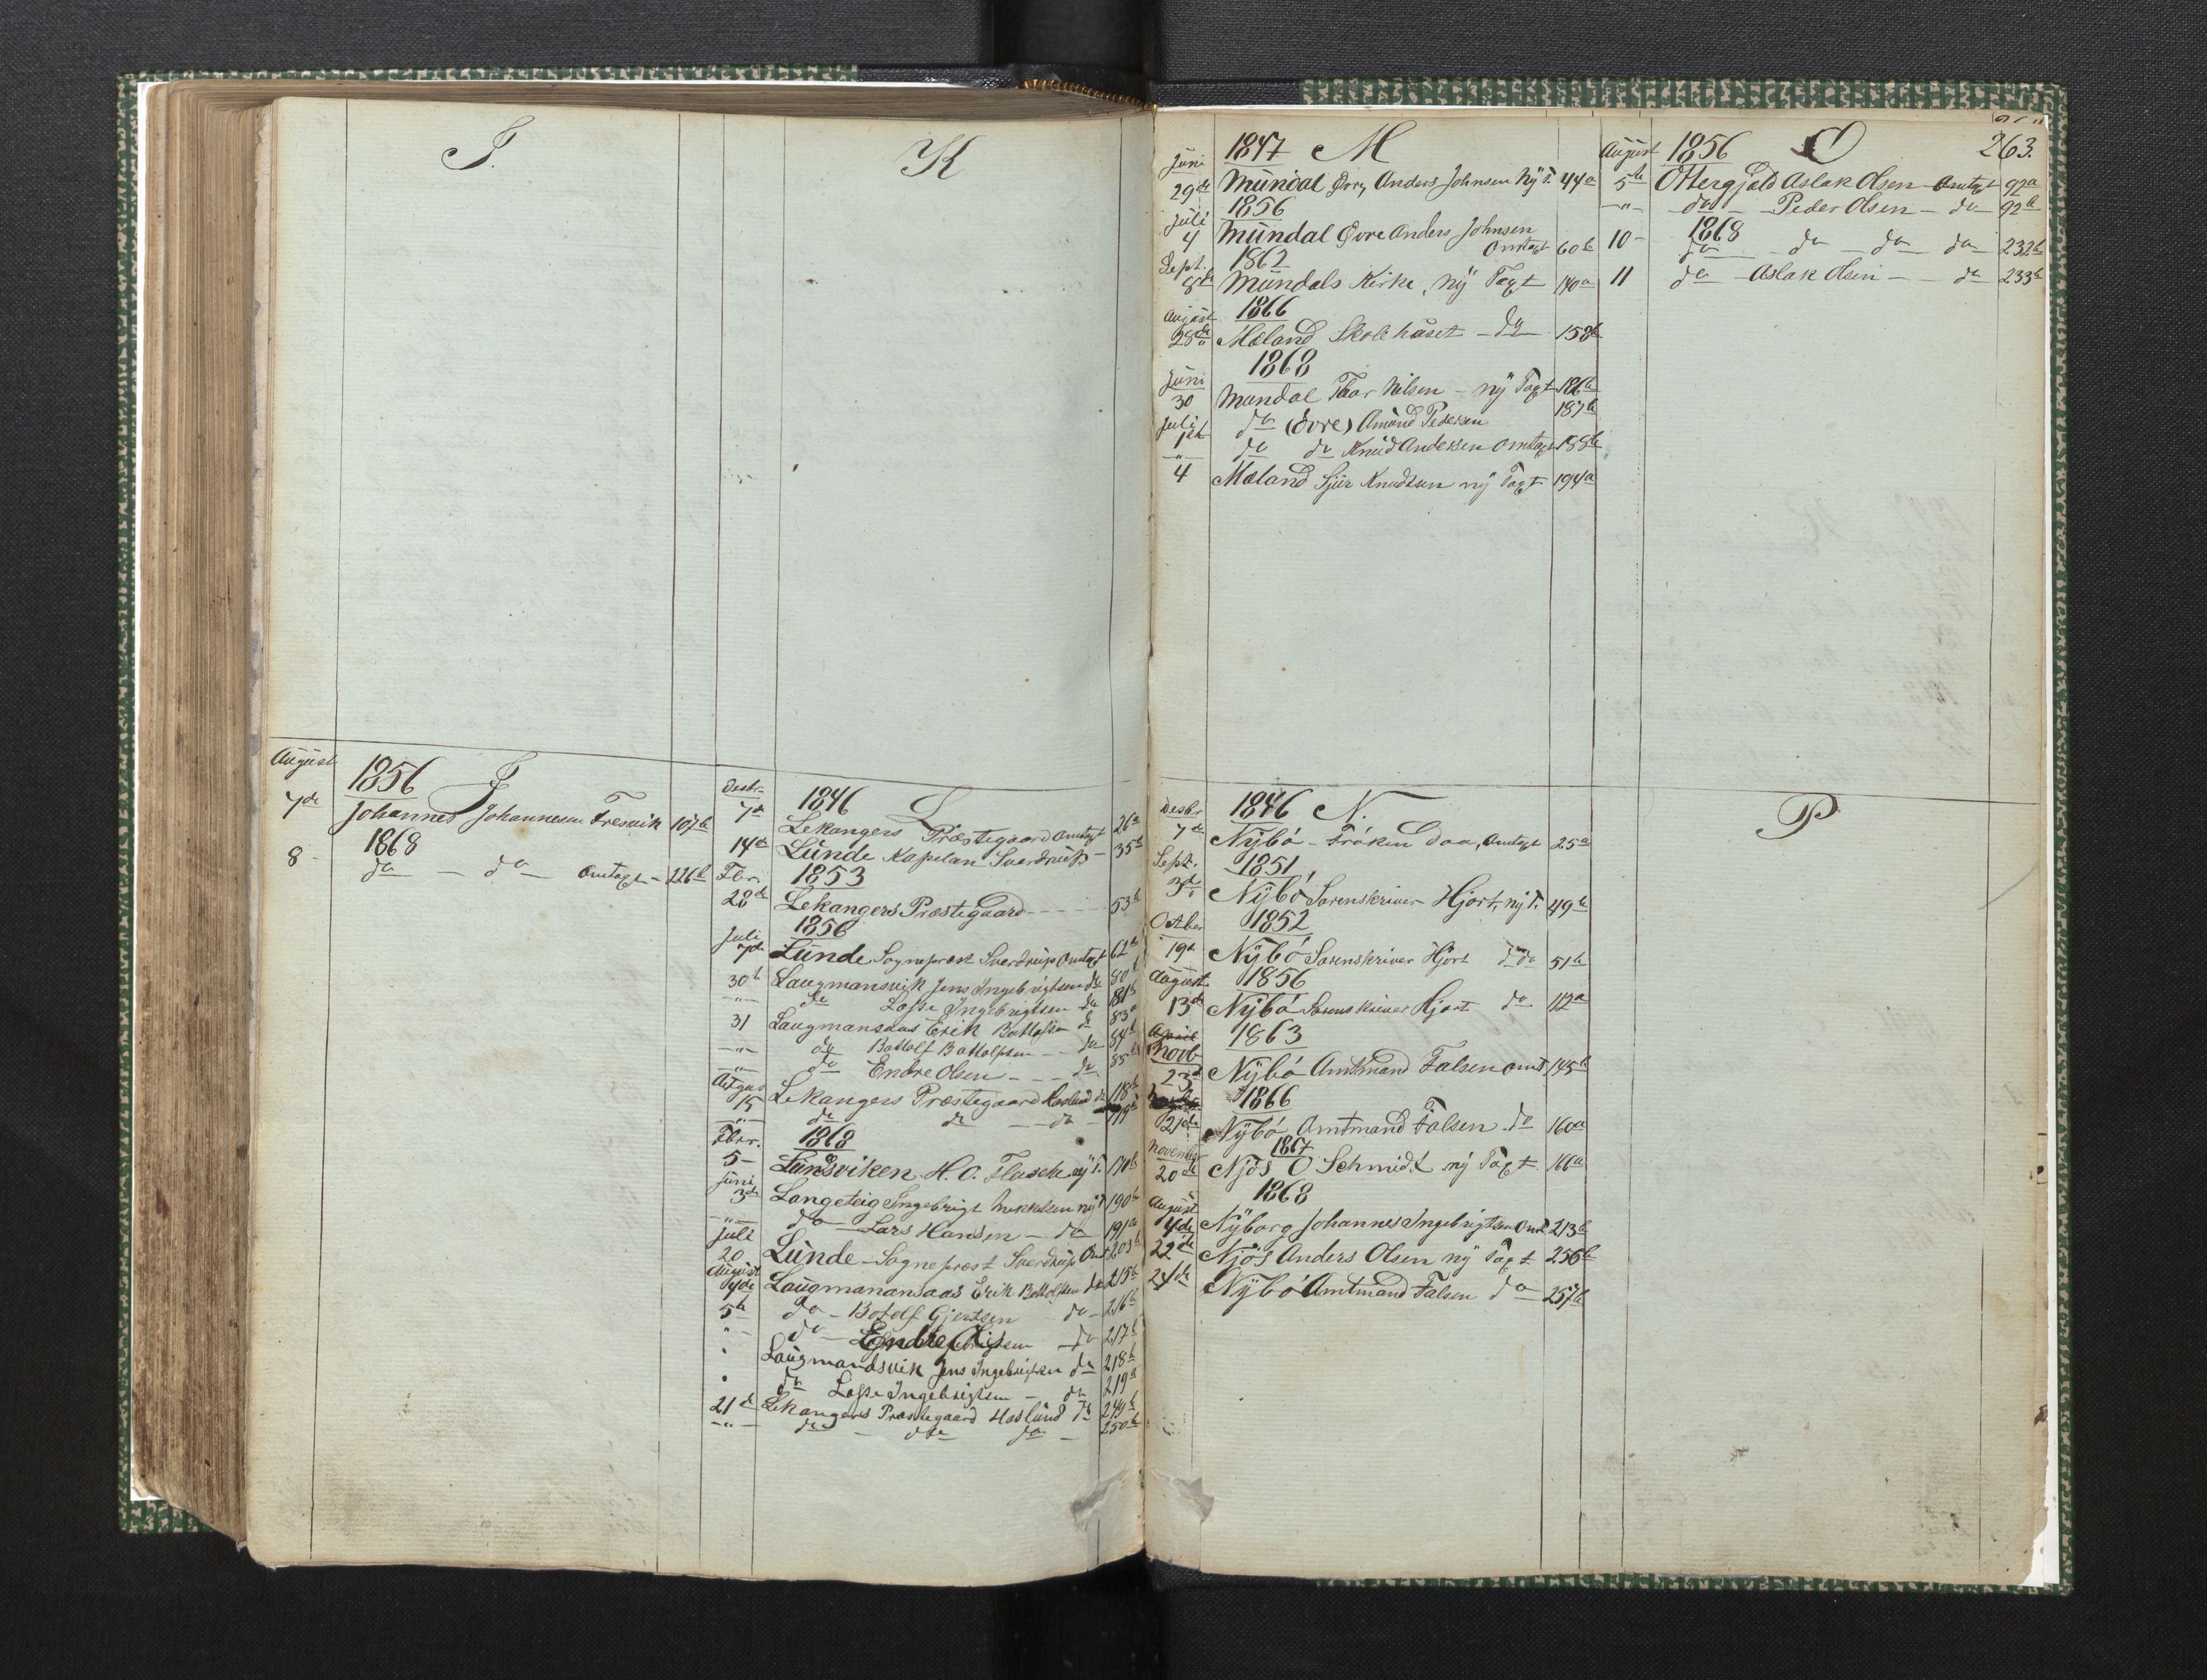 I.
K
August
1856 J
7de Johannes Johannesen Fresvik 107b
1868
8 - do - do - Omtaxt - 226b
Desbr.
1846 L
7de Lekangers Præstegaard Omtaxt 26a
14de Lunde Kapelan Sverdrup - 35b
Fbr. 1853
28de Lekangers Præstegaard - - - 53b
Juli 1856
7de Lunde Sognepræst Sverdrup Omtaxt 62a
30te Laugmansvik Jens Ingebrigtsen do 80b
-"- do Lasse Ingebrigtsen do 81b
31 Laugmansaas Erik Bottolfsen do 83a
-"- do Bottolf Bottolfsen - - do 84b
-"- do Endre Olsen - - - do 85b
August
15 Lekangers Præstegaard Haslund do 118b
-"- do do - - do - 119b
Fbrr. 1868
5 - Lundsviken H. O. Flasch ny T. 170b
Juni
3de Langeteig Ingebrigt Mikkelsen ny T 190b
-"- do - Lars Hansen - do 191a
Juli
20 Lunde - Sognepræst Sverdrup Omt 203b
August
4de Laugmanansaas Erik Bottolfsen do 215b
5te do - Botolf Gjertsen do - 216b
" - do - Endre - do 217b
" Laugmandsvik Jens Ingebrigtsen do 218b
" do Lasse Ingebrigtsen - do 219b
21de Lekangers Præstegaard Haslund do 249b
-"- do - do do - 250b
263.
Juni 1847 M
29de Mundal Øvre, Anders Johnsen Ny T. 44a
Juli 1856
4 Mundal Øvre Anders Johnsen
Omtaxt 60b
Sept. 1862
8de Mundals Kirke, ny Taxt 140a
August 1866
25de Mæland Skolehuset - do - 158b
1868
Juni
30 Mundal Thor Nilsen - ny Taxt 186b
Juli
1ste do (Øvre) Amund Pedersen 187b
-"- do do Knud Andersen Omtaxt 188b
4 Mæland Sjur Knudsen ny Taxt 194a
August 1856 O
5te Ottergjeld Aslak Olsen Omtaxt 92a
-"- do - Peder Olsen - do - 92b
1868
10 - do do - do - do - 232b
11 do - Aslak Olsen - - do 233b
Desbr 1846 N.
7de Nybø - Frøken Daa, Omtaxt 25a
Sept. 1851
3de Nybø Sorenskriver Hjort, ny T. 49b
Octber 1852
19de Nybø Sorenskriver Hjort do do 51b
August 1856
13de Nybø Sorenskriver Hjort do 112a
1863
Novb
23de Nybø Amtmand Falsen Omt 145b
1866
21de Nybø, Amtmand Falsen do 160a
November 1867
20de Njøs O Schmidt ny Taxt 166a
1868
August
4de Nyborg Johannes Ingebrigtsen Omt 213b
22de Njøs Anders Olsen ny Taxt 256b
24de Nybø Amtmand Falsen do 257b
P